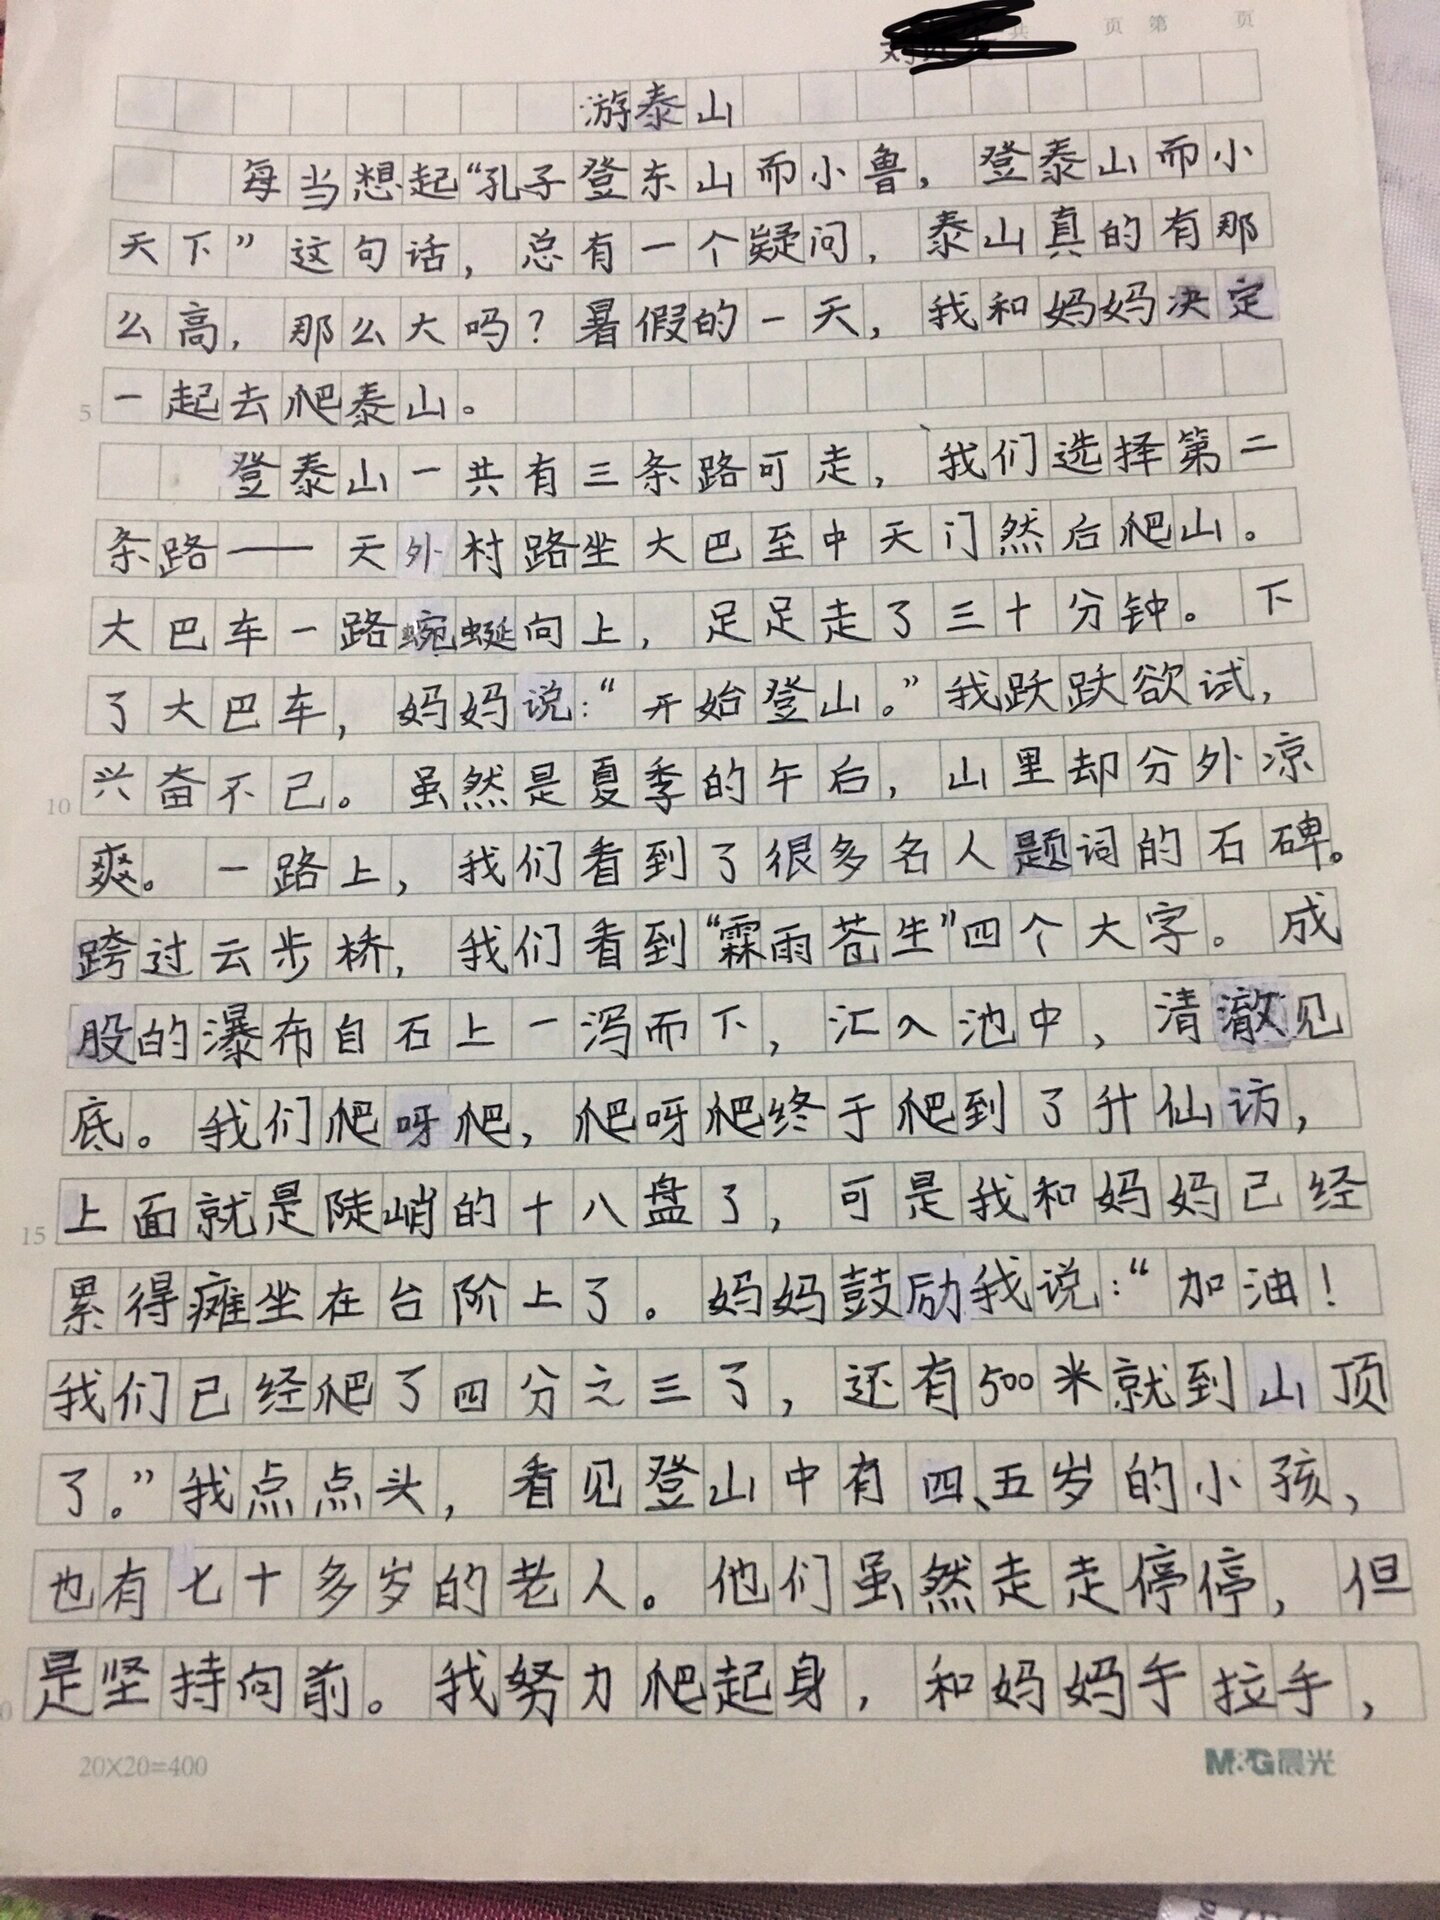 共 页 第 页
游泰山
每当想起“孔子登东山而小鲁，登泰山而小
天下”这句话，总有一个疑问，泰山真的有那
么高，那么大吗？暑假的一天，我和妈妈决定
5 一起去爬泰山。
登泰山一共有三条路可走，我们选择第二
条路——天外村路坐大巴至中天门然后爬山。
大巴车一路蜿蜒向上，足足走了三十分钟。下
了大巴车，妈妈说：“开始登山。”我跃跃欲试，
10 兴奋不已。虽然是夏季的午后，山里却分外凉
爽。一路上，我们看到了很多名人题词的石碑。
跨过云步桥，我们看到“霖雨苍生”四个大字。成
股的瀑布自石上一泻而下，汇入池中，清澈见
底。我们爬呀爬，爬呀爬终于爬到了升仙访，
15 上面就是陡峭的十八盘了，可是我和妈妈已经
累得瘫坐在台阶上了。妈妈鼓励我说：“加油！
我们已经爬了四分之三了，还有500米就到山顶
了。”我点点头，看见登山中有四、五岁的小孩，
也有七十多岁的老人。他们虽然走走停停，但
是坚持向前。我努力爬起身，和妈妈手拉手，
20×20=400
M&G晨光